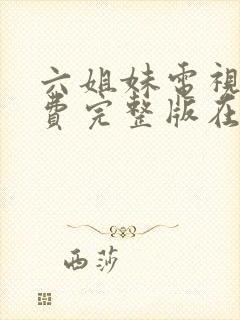 六姐妹電視
費完整版在
西莎